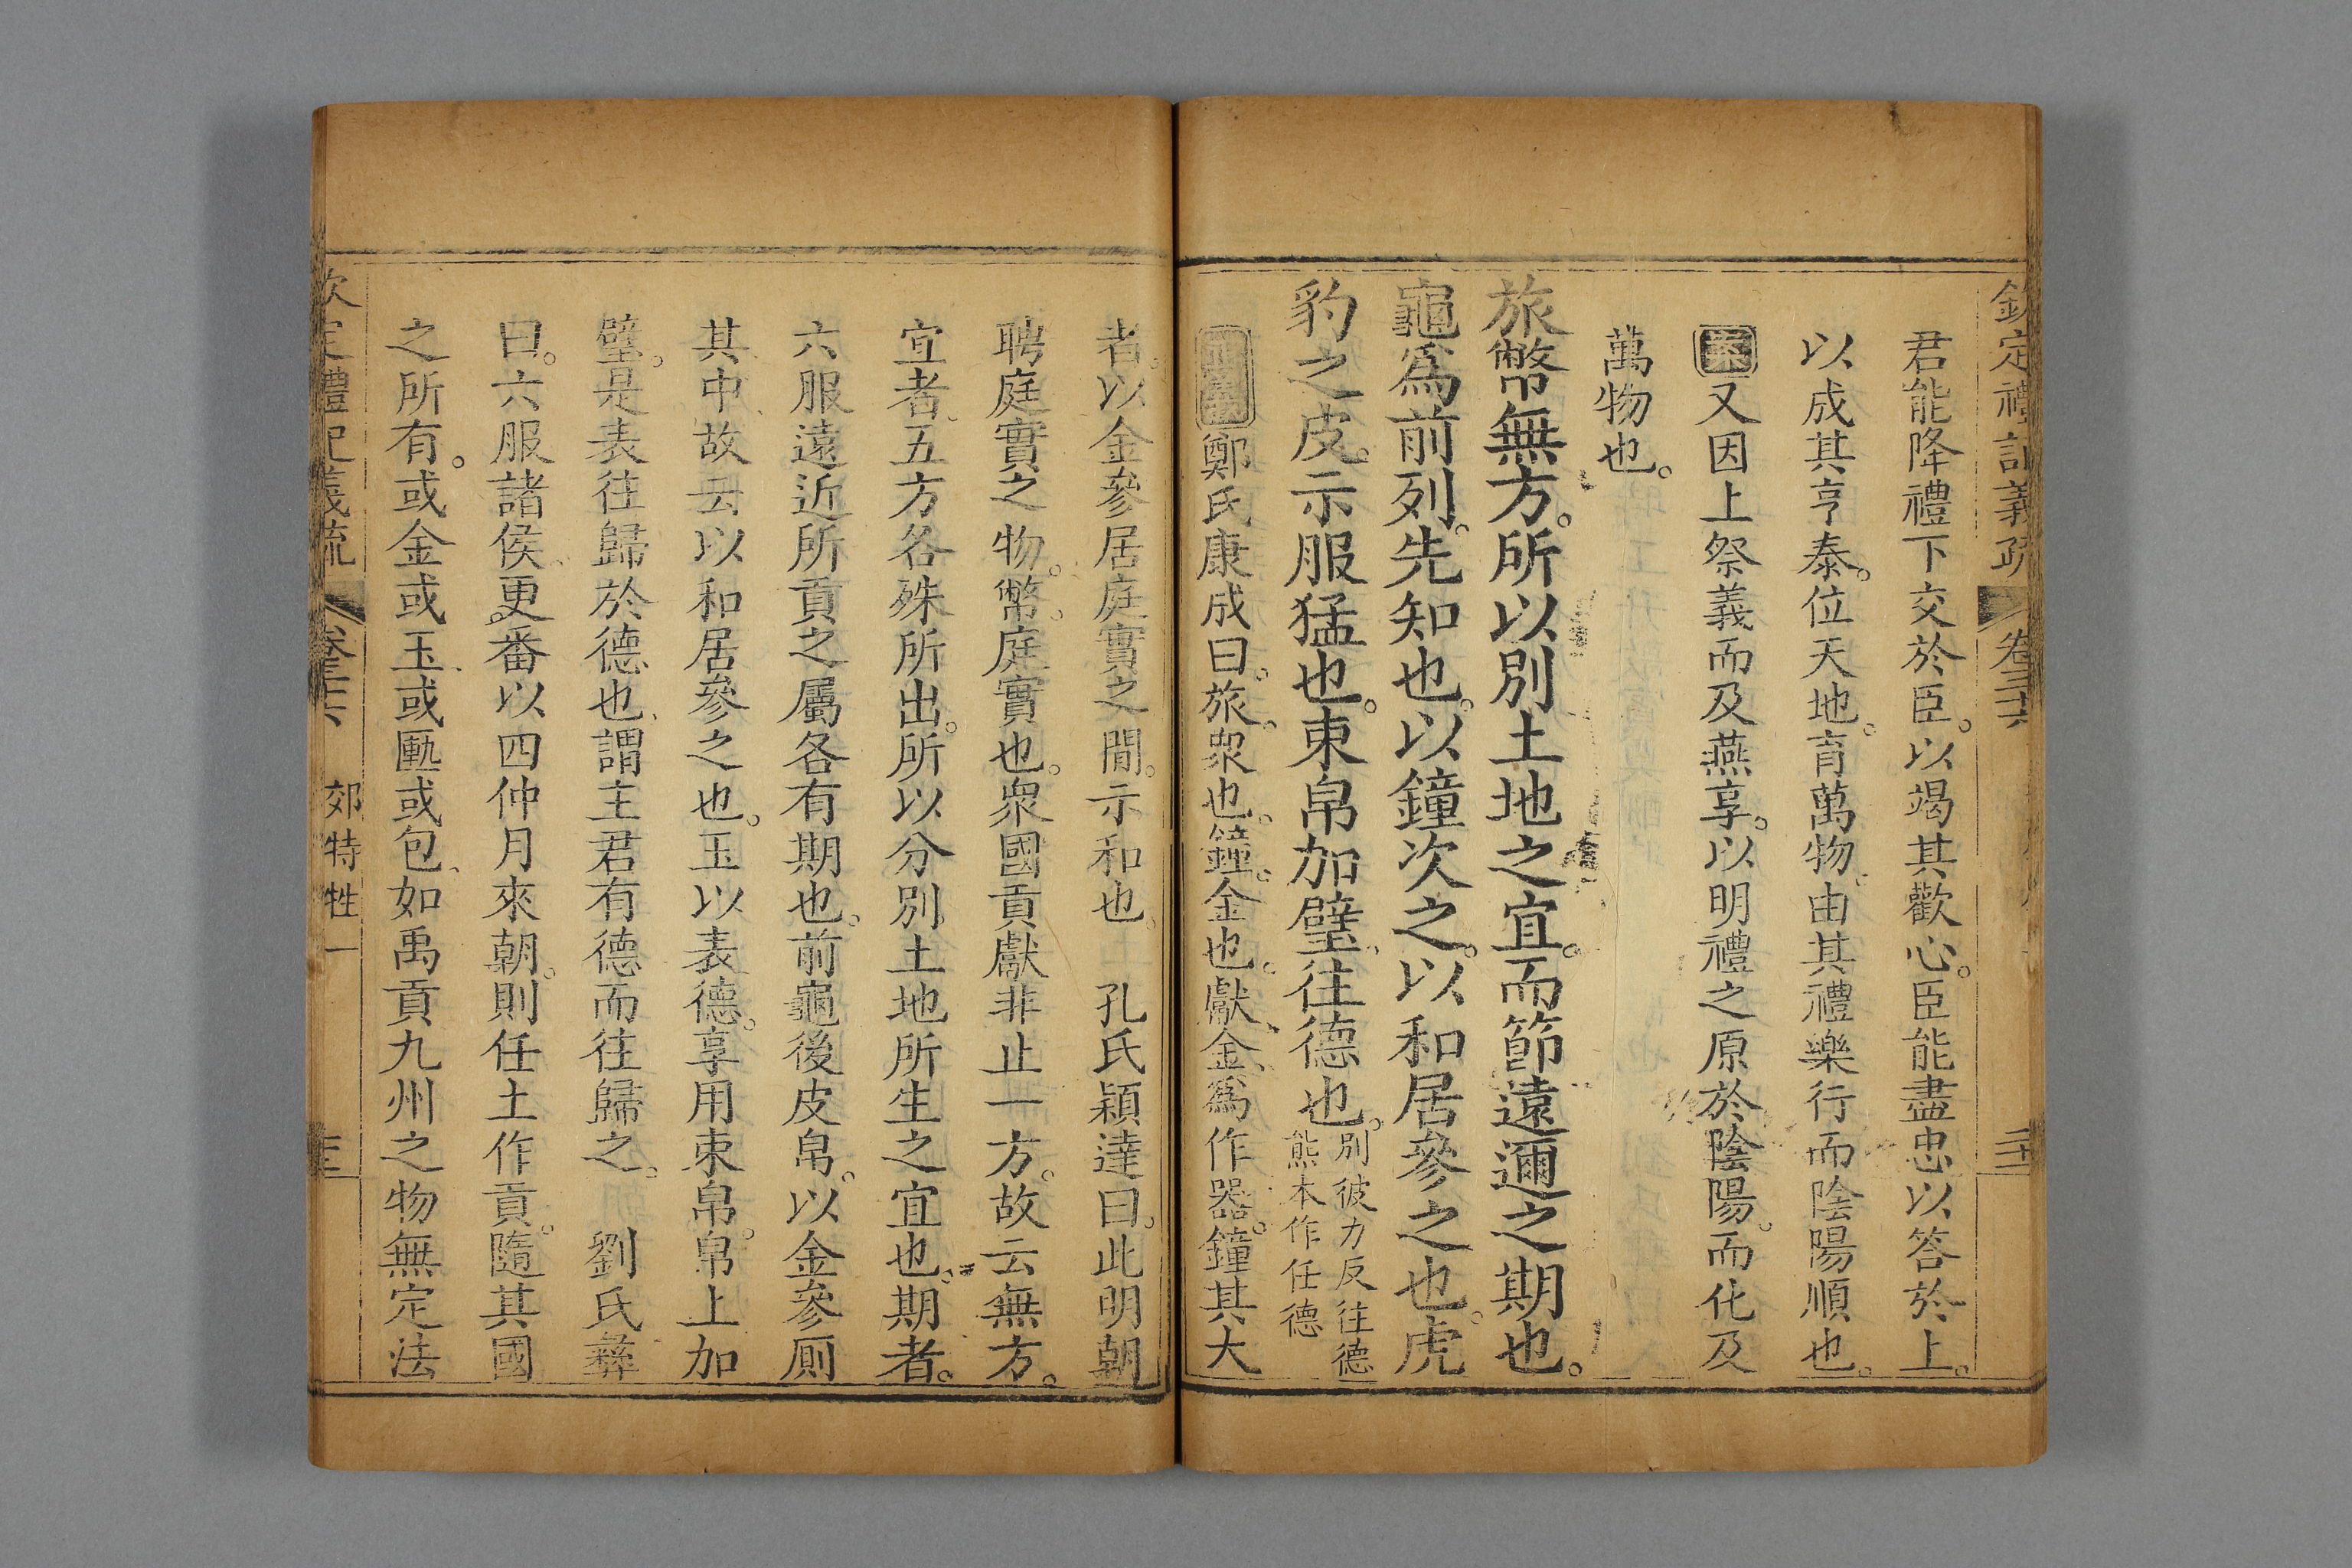 欽定禮記義疏 卷三十六
君能降禮下交於臣。以竭其歡心。臣能盡忠以答於上。
以成其亨泰。位天地。育萬物。由其禮樂行而陰陽順也。
案又因上祭義而及燕享。以明禮之原於陰陽。而化及
萬物也。
旅幣無方。所以別土地之宜。而節遠邇之期也。
龜爲前列。先知也。以鐘次之。以和居參之也。虎
豹之皮。示服猛也。束帛加璧。往德也。別彼力反往德
熊本作任德
正義鄭氏康成曰。旅。眾也。鐘。金也。獻金。爲作器。鐘其大
者。以金參居庭實之間。示和也。 孔氏穎達曰。此明朝
聘庭實之物。幣。庭實也。眾國貢獻非止一方。故云無方。
宜者、五方各殊所出。所以分別土地所生之宜也。期者。
六服遠近所貢之屬各有期也。前龜後皮帛。以金參厠
其中、故云以和居參之也。玉以表德。享用束帛。帛上加
璧。是表往歸於德也、謂主君有德而往歸之。 劉氏彝
曰。六服諸侯、更番以四仲月來朝。則任土作貢。隨其國
之所有。或金或玉、或匭或包、如禹貢九州之物無定法
欽定禮記義疏 卷三十六 郊特牲一